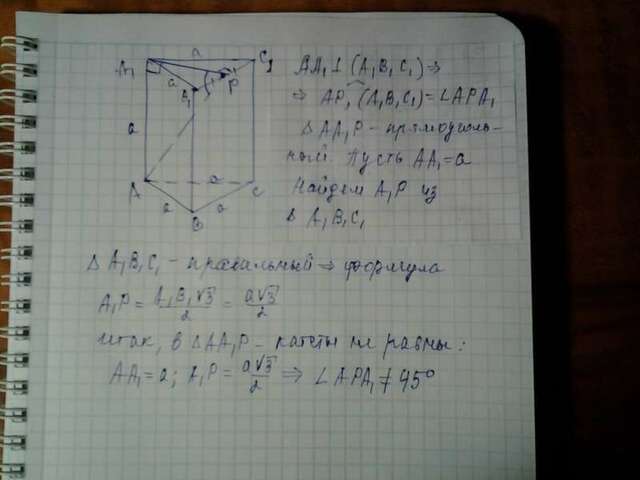 a
A₁ C₁
a B₁ P
a
A a C
a B a
AA₁ ⊥ (A₁B₁C₁) ⇒
⇒ AP, (A₁B₁C₁) = ∠APA₁
△ AA₁P - прямоуголь-
ный. Пусть AA₁ = a
Найдем A₁P из
△ A₁B₁C₁
△ A₁B₁C₁ - правильный ⇒ формула
A₁P = A₁B₁√3/2 = a√3/2
итак, в △AA₁P - катеты не равны:
AA₁ = a; A₁P = a√3/2 ⇒ ∠APA₁ ≠ 45°